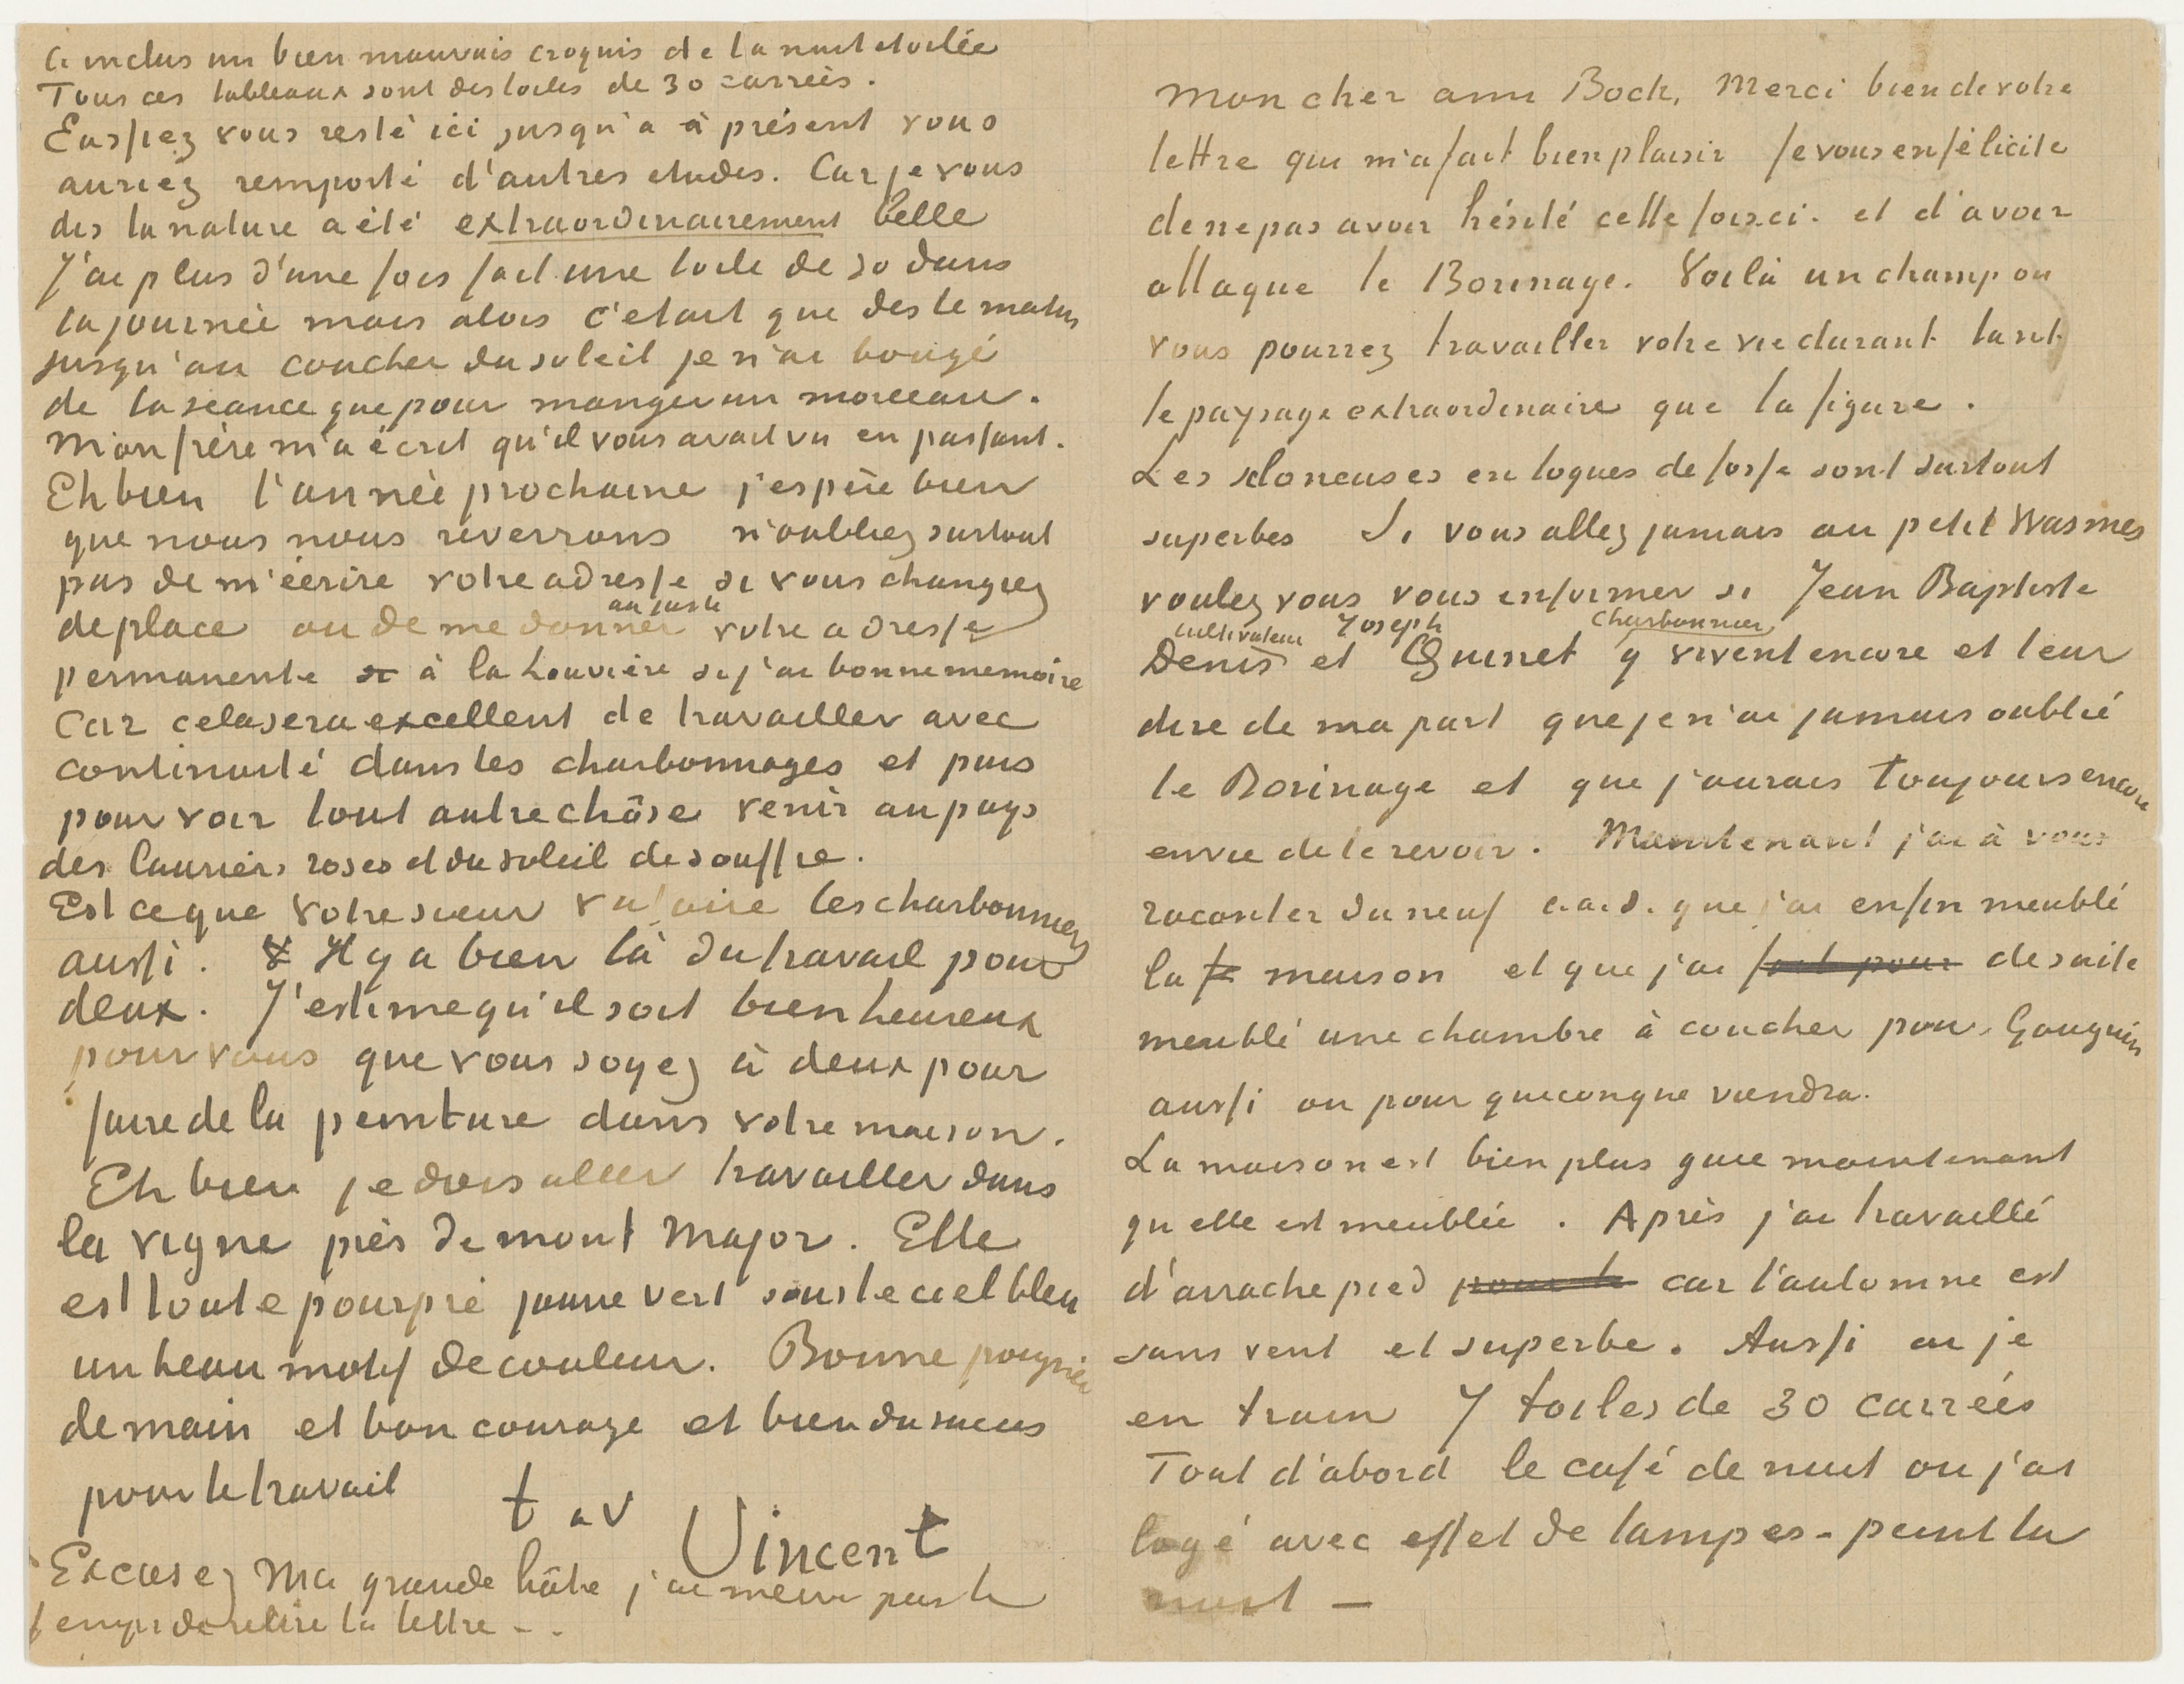 Mon cher ami Boch, Merci bien de votre
lettre qui m'a fait bien plaisir Je vous en félicite
de ne pas avoir hésité cette fois ci. et d'avoir
attaque le Borinage. Voilà un champ ou
vous pourrez travailler votre vie durant tant
le paysage extraordinaire que la figure.
Les scloneuses en loques de fosse sont surtout
superbes Si vous allez jamais au petit Wasmes
voulez vous vous informer si Jean Baptiste
cultivateur Joseph charbonnier
Denis et Quinet y vivent encore et leur
dire de ma part que je n'ai jamais oublié
le Borinage et que j'aurais toujours encore
envie de le revoir. Maintenant j'ai à vous
raconter du neuf c.à.d. que j'ai enfin meublé
la maison et que j'ai fait pour de suite
meublé une chambre à coucher pour Gauguin
aussi ou pour quiconque viendra.
La maison est bien plus gaie maintenant
qu'elle est meublée. Après j'ai travaillé
d'arrache pied pour le car l'automne est
sans vent et superbe. Aussi ai je
en train 7 toiles de 30 carrées
Tout d'abord le café de nuit ou j'ai
logé avec effet de lampes - peint la
nuit —
Ci inclus un bien mauvais croquis de la nuit etoilée
Tous ces tableaux sont des toiles de 30 carrées.
Eussiez vous resté ici jusqu'a à présent vous
auriez remporté d'autres etudes. Car je vous
dis la nature a été extraordinairement belle
J'ai plus d'une fois fait une toile de 30 dans
la journée mais alors c'etait que des le matin
jusqu'au coucher du soleil je n'ai bougé
de la séance que pour manger un morceau.
Mon frère m'a écrit qu'il vous avait vu en passant.
Eh bien l'année prochaine j'espère bien
que nous nous reverrons n'oubliez surtout
pas de m'écrire votre adresse si vous changiez
au juste
de place ou de me donner votre adresse
permanente à la Louvière si j'ai bonne memoire
Car cela sera excellent de travailler avec
continuité dans les charbonnages et puis
pour voir tout autre chôse venir au pays
des lauriers roses et du soleil de souffre.
Est ce que votre soeur va faire les charbonniers
aussi. Il y a bien là du travail pour
deux. J'estime qu'il soit bien heureux
pour vous que vous soyez à deux pour
faire de la peinture dans votre maison.
Eh bien je dois aller travailler dans
la vigne près de mont Major. Elle
est toute pourpre jaune vert sous le ciel bleu
un beau motif de couleur. Bonne poignée
de main et bon courage et bien du succes
pour le travail
t a v
Vincent
Excusez ma grande hâte j'ai meme pas le
temps de relire la lettre - .